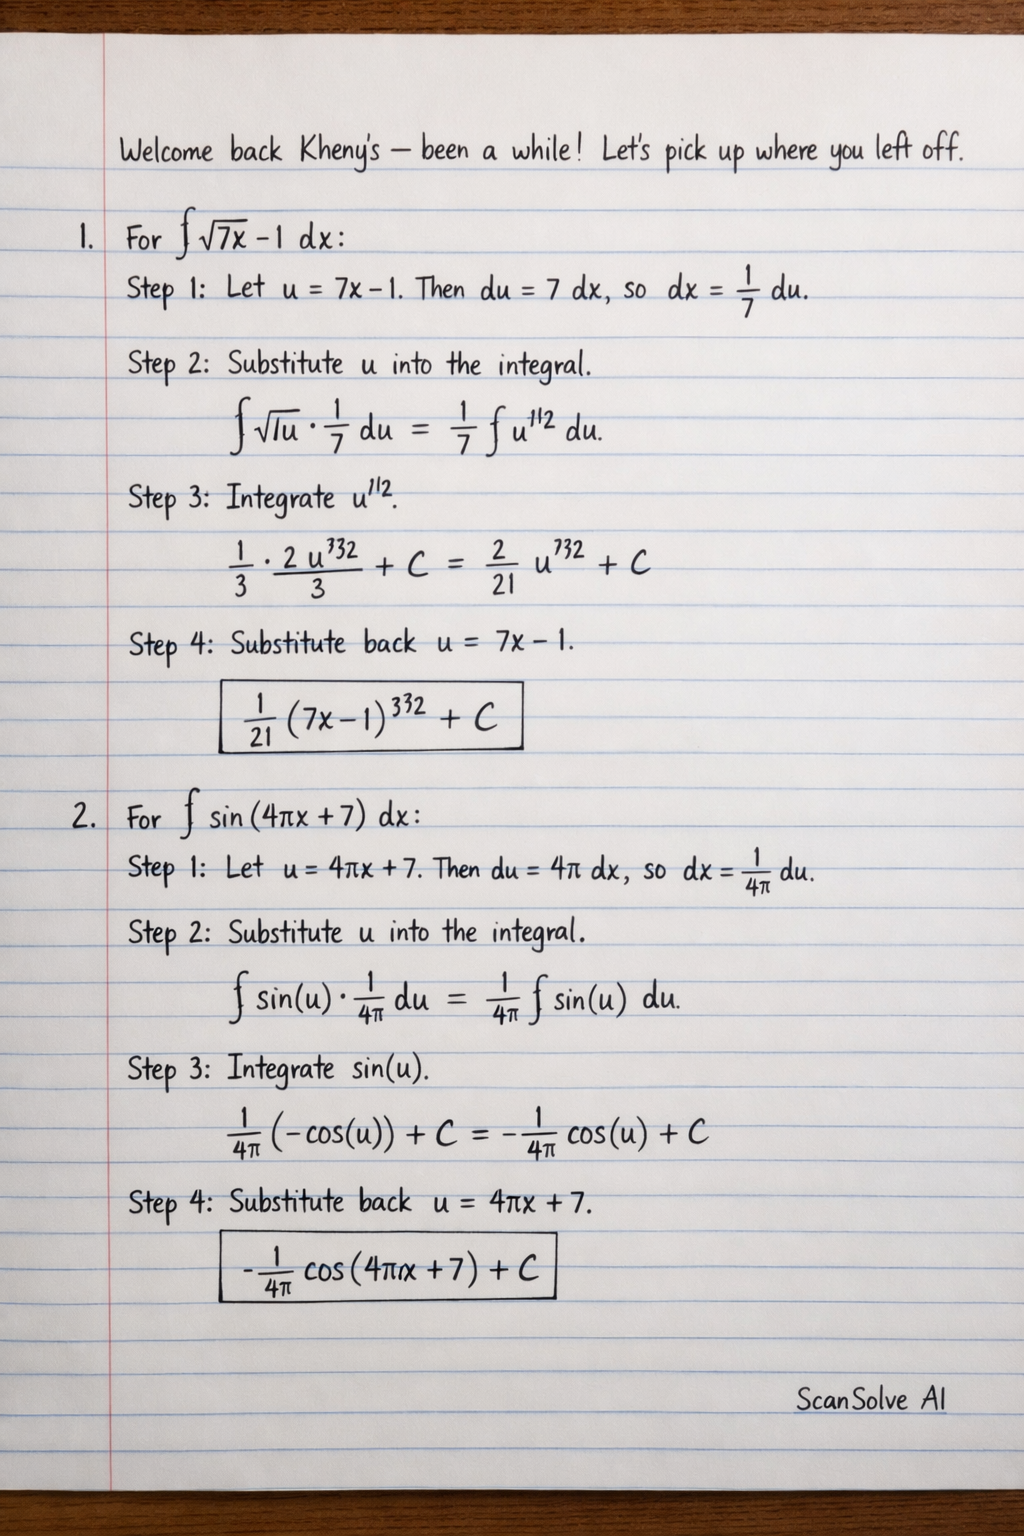 Welcome back Kheny's — been a while! Let's pick up where you left off.
1. For ∫ √7x - 1 dx:
Step 1: Let u = 7x - 1. Then du = 7 dx, so dx = 1/7 du.
Step 2: Substitute u into the integral.
∫ √1u · 1/7 du = 1/7 ∫ u^112 du.
Step 3: Integrate u^112.
1/3 · 2 u^332/3 + C = 2/21 u^732 + C
Step 4: Substitute back u = 7x - 1.
1/21 (7x - 1)^332 + C
2. For ∫ sin (4πx + 7) dx:
Step 1: Let u = 4πx + 7. Then du = 4π dx, so dx = 1/4π du.
Step 2: Substitute u into the integral.
∫ sin(u) · 1/4π du = 1/4π ∫ sin(u) du.
Step 3: Integrate sin(u).
1/4π (-cos(u)) + C = -1/4π cos(u) + C
Step 4: Substitute back u = 4πx + 7.
-1/4π cos(4πx + 7) + C
ScanSolve AI